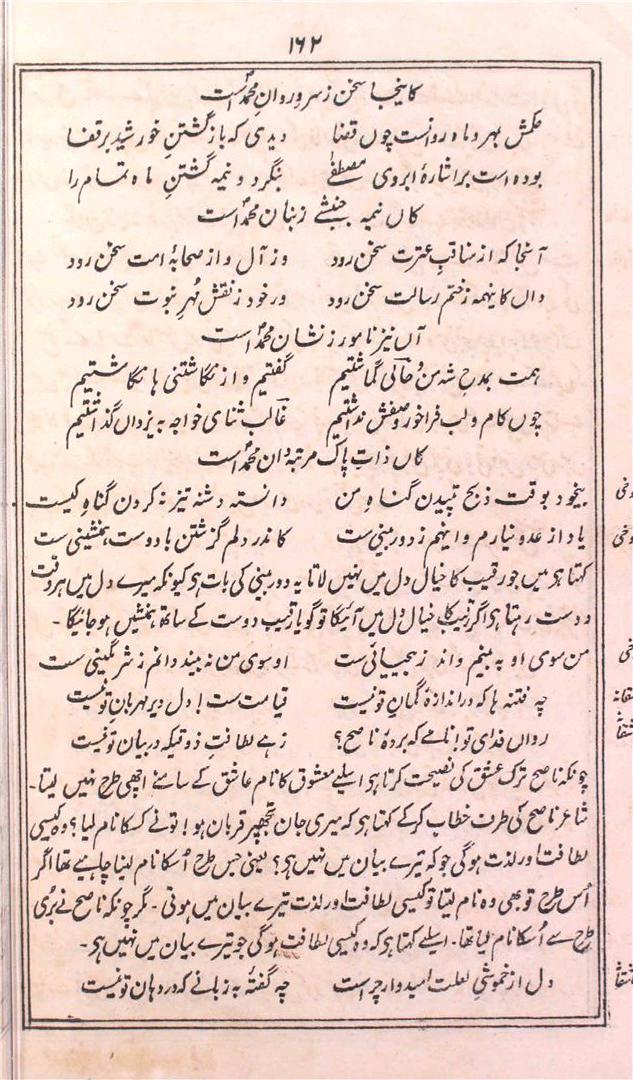 ۱۶۲
کاینجا سخن ز سرورِ روانِ محمدؐ است
حکمش بمهر و ماه روانست چوں قضا دیدی که بازگشتنِ خورشید بر قفا
بوده است بر اشارۂ ابروی مصطفےٰ بنگر دو نیمه گشتنِ ماهِ تمام را
کاں نیمه جنبشے ز بنانِ محمدؐ است
آنجا که از مناقبِ عترت سخن رود وز آل و از صحابۂ امت سخن رود
واں کاینهمه ز ختم رسالت سخن رود ور خود ز نقش مُهرِ نبوت سخن رود
آں نیز نامور ز نشانِ محمدؐ است
همت بمدحِ شه من و حالی گماشتیم گفتیم و از نگاشتنی ها نگاشتیم
چوں کام و لب فراخورِ وصفش نداشتیم غالب ثنای خواجه به یزداں گذاشتیم
کاں ذاتِ پاک مرتبه دانِ محمدؐ است
بیخود بوقت ذبح تپیدن گناهِ من دانسته دشنه تیز نه کردن گناهِ کیست
یاد از عدو نیارم و اینهم ز دور بینی ست کاندر دلم گزشتن با دوست همنشینی ست
کہتا ہی میں جو رقیب کا خیال دل میں نہیں لاتا یہ دور بینی کی بات ہی کیونکہ میرے دل میں ہر وقت
دوست رہتا ہی اگر رقیب کا خیال دل میں آئیگا تو گویا رقیب دوست کے ساتھ ہمنشیں ہو جائیگا ۔
من سوی او به بینم و اند ز بیحیائی ست او سوی من نه بیند دانم ز شرمگینی ست
چه فتنه ها که در اندازۂ گمانِ تو نیست قیامت ست! دل دیر مهربانِ تو نیست
رواں فدای تو! نامے که بردۂ ناصح؟ زہے لطافتِ ذوقیکه در بیان تو نیست
چونکہ ناصح ترک عشق کی نصیحت کرتا ہی اسلیے معشوق کا نام عاشق کے سامنے اچھی طرح نہیں لیتا ۔
شاعر ناصح کی طرف خطاب کرکے کہتا ہی کہ میری جان تجھپر قربان ہو! تونے کسکا نام لیا؟ وہ کیسی
لطافت اور لذت ہوگی جو کہ تیرے بیان میں نہیں ہی؟ یعنی جس طرح اُسکا نام لینا چاہیے تھا اگر
اُس طرح تو بھی وہ نام لیتا تو کیسی لطافت اور لذت تیرے بیان میں ہوتی ۔ مگر چونکہ ناصح نے بُری
طرح سے اُسکا نام لیا تھا ۔ اسلیے کہتا ہی کہ وہ کیسی لطافت ہوگی جو تیرے بیان میں نہیں ہی ۔
دل از خموشیِ لعلت امیدوار چراست چه گفتۂ به زبانے که در دهانِ تو نیست